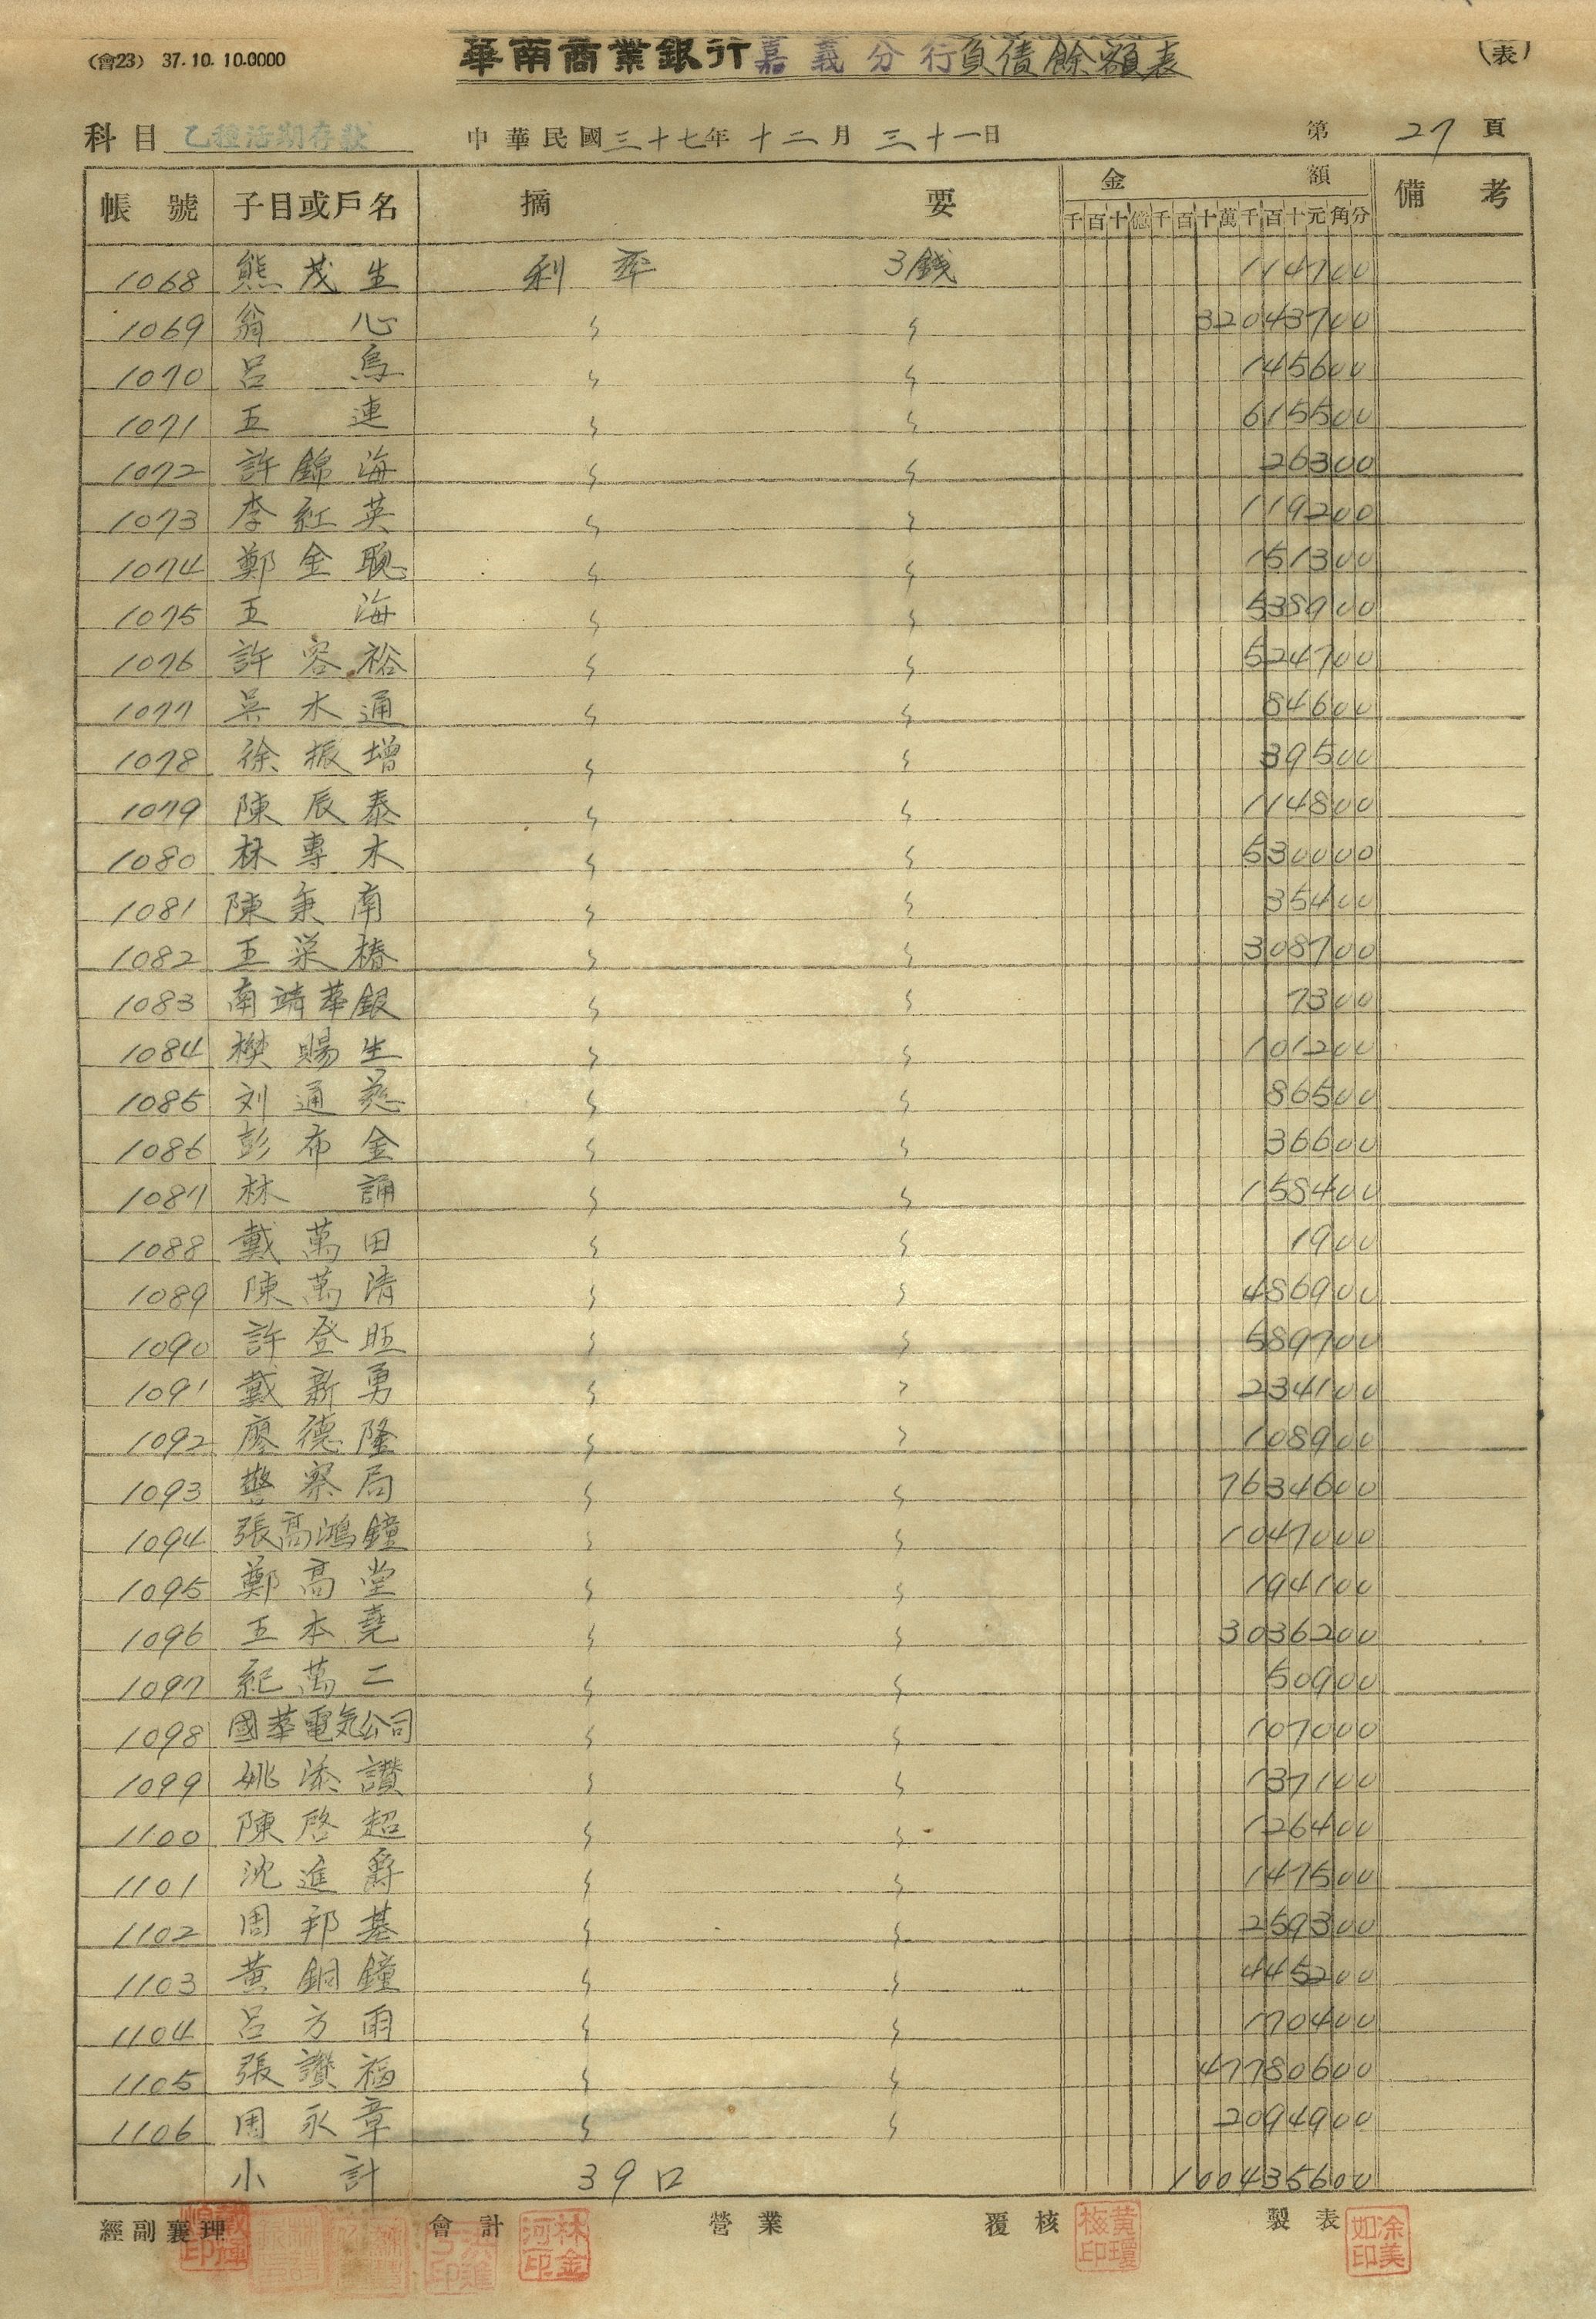 (會23) 37.10.10.0000
華南商業銀行嘉義分行負債餘額表
(表)
科目 乙種活期存款 中華民國三十七年十二月三十一日 第27頁
帳號 子目或戶名 摘要 金額 備考
千百十億千百十萬千百十元角分
1068 熊茂生 利率 3錢 114700
1069 翁心 〃 〃 32043700
1070 呂烏 〃 〃 145600
1071 王連 〃 〃 615500
1072 許錦海 〃 〃 26300
1073 李紅英 〃 〃 119200
1074 鄭金聰 〃 〃 151300
1075 王海 〃 〃 538900
1076 許容裕 〃 〃 524700
1077 吳水通 〃 〃 84600
1078 徐振增 〃 〃 39500
1079 陳辰泰 〃 〃 114800
1080 林專木 〃 〃 530000
1081 陳秉南 〃 〃 35400
1082 王栄椿 〃 〃 308700
1083 南靖華銀 〃 〃 7300
1084 賜生 〃 〃 101200
1085 刘通慈 〃 〃 86500
1086 彭布金 〃 〃 36600
1087 林誦 〃 〃 158400
1088 戴萬田 〃 〃 1900
1089 陳萬清 〃 〃 486900
1090 許登旺 〃 〃 589700
1091 戴新勇 〃 〃 234100
1092 廖德隆 〃 〃 108900
1093 警察局 〃 〃 7634600
1094 張高鴻鐘 〃 〃 1047000
1095 鄭高堂 〃 〃 194100
1096 王本堯 〃 〃 3036200
1097 紀萬二 〃 〃 50900
1098 國華電気公司 〃 〃 107000
1099 姚添讚 〃 〃 137100
1100 陳啓超 〃 〃 126400
1101 沈進爵 〃 〃 147500
1102 周邦基 〃 〃 259300
1103 黃銅鐘 〃 〃 445200
1104 呂方雨 〃 〃 170400
1105 張讚福 〃 〃 47780600
1106 周永章 〃 〃 2094900
小計 39口 100435600
經副襄理 會計 營業 覆核 製表
林金河印
黃瓊核印
涂美如印